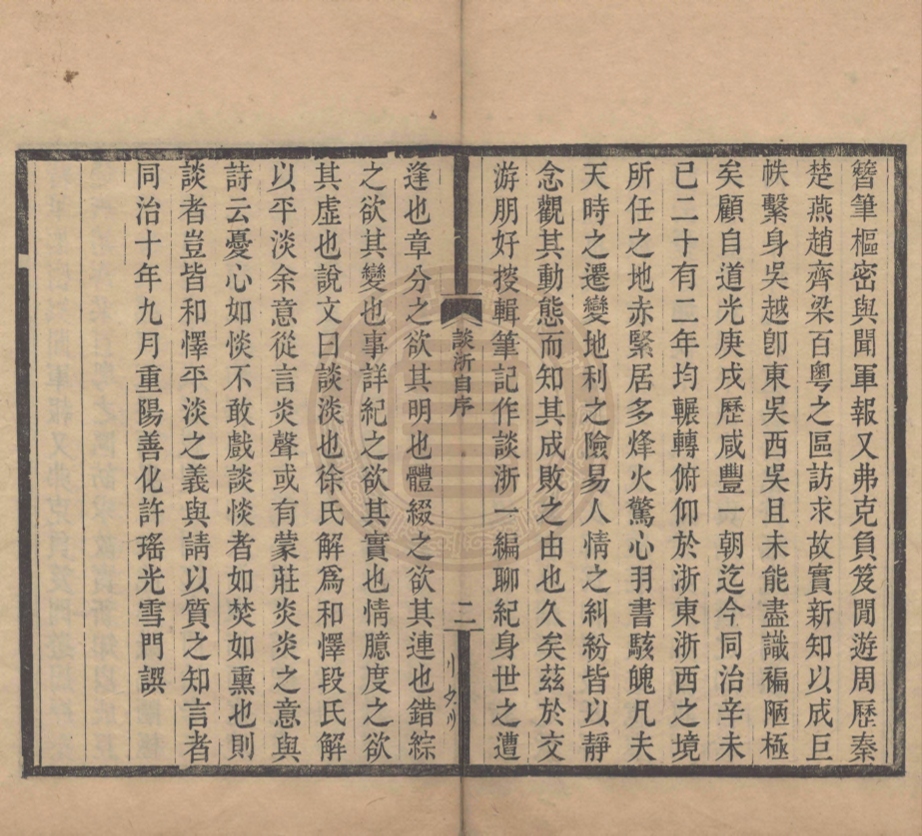 簪筆樞密與聞軍報又弗克負笈閒遊周歷秦
楚燕趙齊梁百粵之區訪求故實新知以成巨
帙繫身吳越卽東吳西吳且未能盡識褊陋極
矣顧自道光庚戌歷咸豐一朝迄今同治辛未
已二十有二年均輾轉俯仰於浙東浙西之境
所任之地赤緊居多烽火驚心羽書駭魄凡夫
天時之遷變地利之險易人情之糾紛皆以靜
念觀其動態而知其成敗之由也久矣茲於交
游朋好按輯筆記作談浙一編聊紀身世之遭
談浙自序
二
逢也章分之欲其明也體綴之欲其連也錯綜
之欲其變也事詳紀之欲其實也情臆度之欲
其虛也說文曰談淡也徐氏解爲和懌段氏解
以平淡余意從言炎聲或有蒙莊炎炎之意與
詩云憂心如惔不敢戲談惔者如焚如熏也則
談者豈皆和懌平淡之義與請以質之知言者
同治十年九月重陽善化許瑤光雪門譔